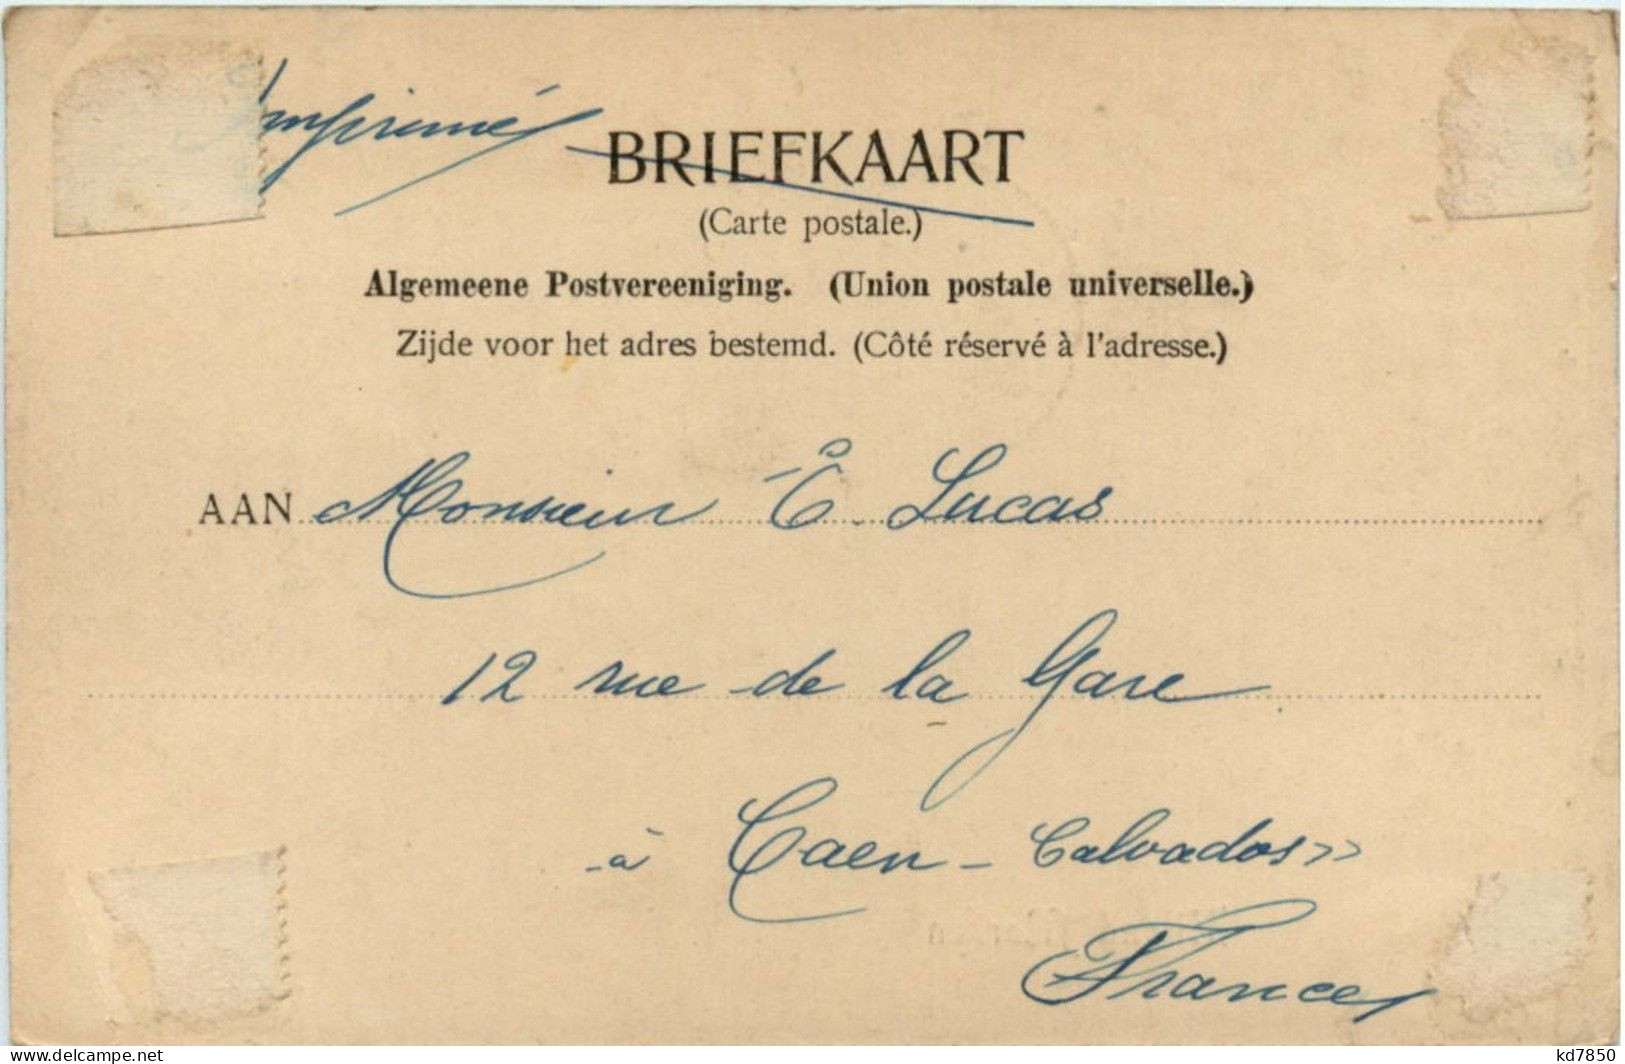 Imprimé
BRIEFKAART
(Carte postale.)
Algemeene Postvereeniging. (Union postale universelle.)
Zijde voor het adres bestemd. (Côté réservé à l'adresse.)
AAN Monsieur E. Lucas
12 rue de la Gare
à Caen - Calvados
France
www.delcampe.net
kd7850